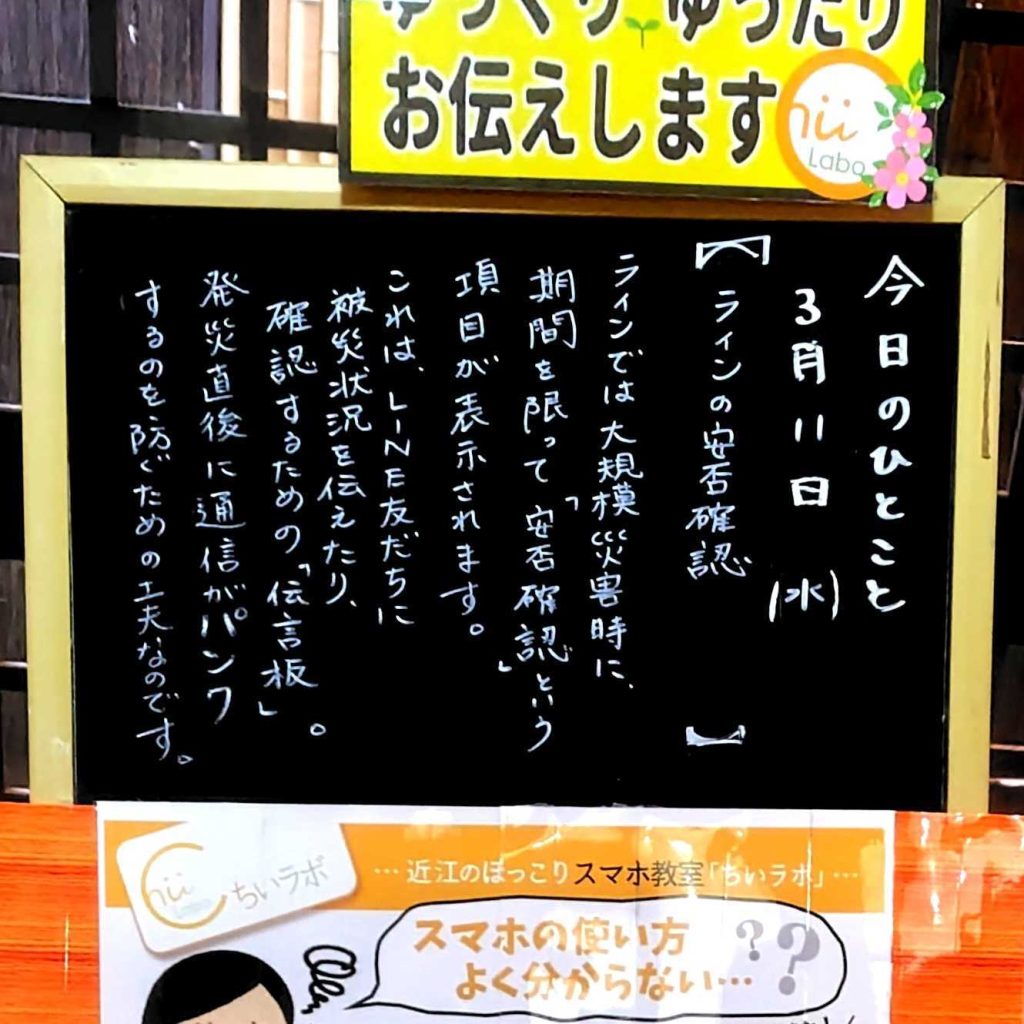 ゆっくり ゆったり
お伝えします
Chii
Labo
今日のひとこと
3月11日(水)
【ラインの安否確認】
ラインでは大規模災害時に、
期間を限って「安否確認」という
項目が表示されます。
これは、LINE友だちに
被災状況を伝えたり、
確認するための「伝言板」。
発災直後に通信がパンク
するのを防ぐための工夫なのです。
Chii
ちいラボ
…近江のほっこりスマホ教室「ちいラボ」…
スマホの使い方
よく分からない…??